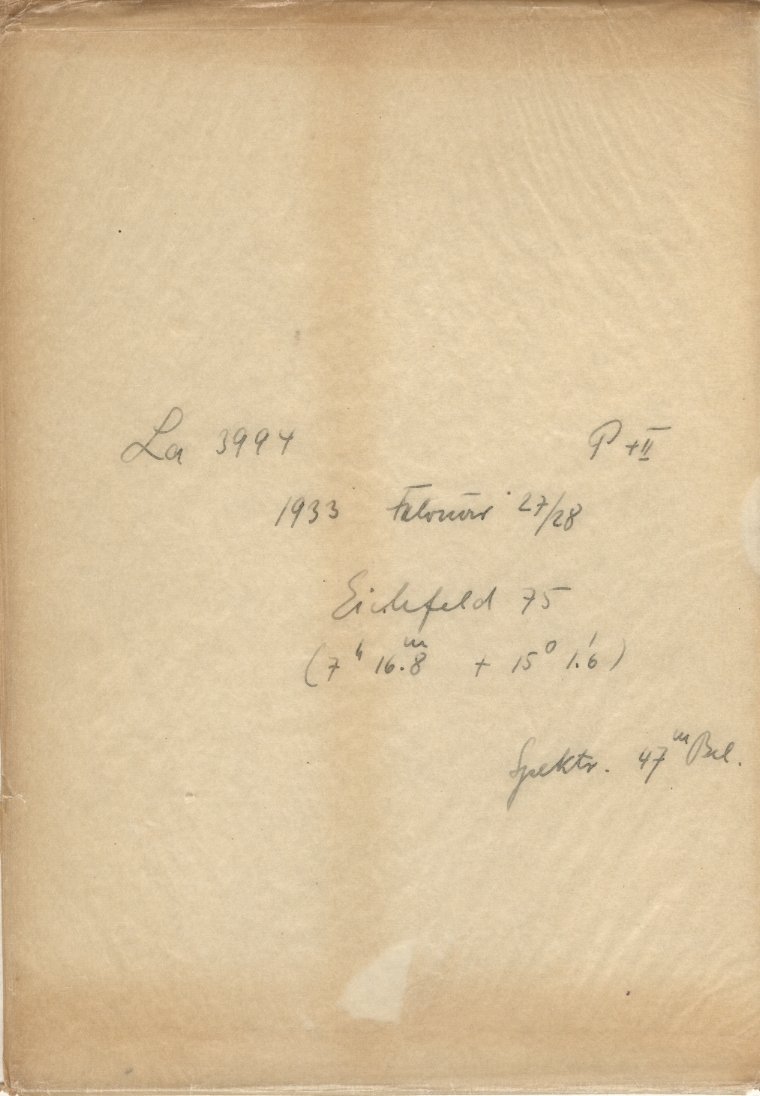 La 3994 P + II
1933 Februar 27/28
Eichfeld 75
(7h 16.m8 + 15° 1.'6)
Spektr. 47m Bel.